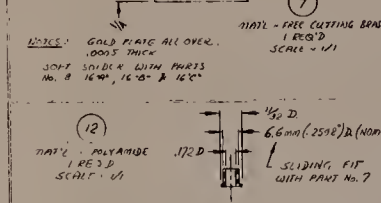 1/4
7
MAT'L - FREE CUTTING BRA
1 REQ'D
SCALE - 1/1
NOTES: GOLD PLATE ALL OVER.
.0005 THICK
SOFT SOLDER WITH PARTS
No. 8 16"A", 16"B" & 16"C"
12
MAT'L - POLYAMIDE
1 REQ'D
SCALE - 1/1
11/32 D.
6.6mm (.2598") D. (NOM
.172 D
SLIDING FIT
WITH PART No. 7